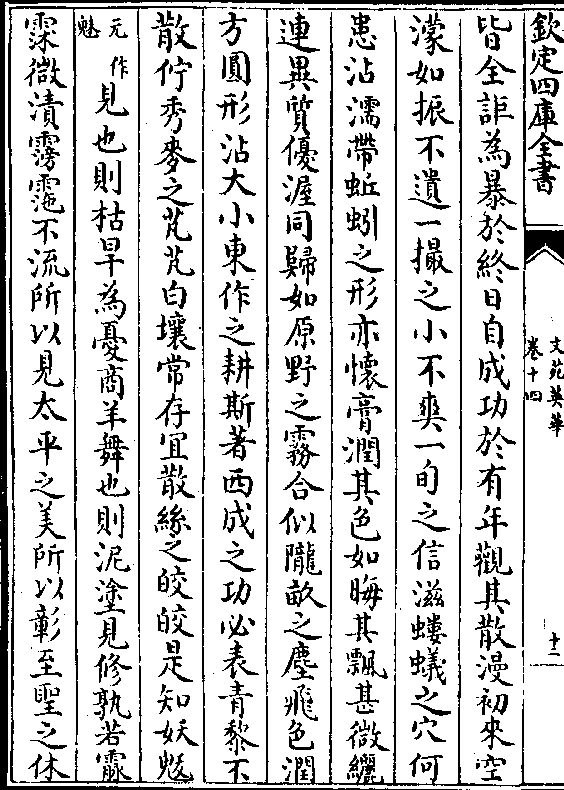 欽定四庫全書
文苑英華
卷十四
十二
皆全詎為暴於終日自成功於有年觀其散漫初來空
濛如振不遺一撮之小不爽一旬之信滋螻蟻之穴何
患沾濡帶蚯蚓之形亦懷膏潤其色如晦其飄甚微纚
連異質優渥同歸如原野之霧合似隴畝之塵飛色潤
方圓形沾大小東作之耕斯著西成之功必表青黎不
散佇秀麥之芃芃白壤常存宜散絲之皎皎是知妖魃
元作魅
見也則枯旱為憂商羊舞也則泥塗見修孰若霢
霂微漬霶霪不流所以見太平之美所以彰至聖之休